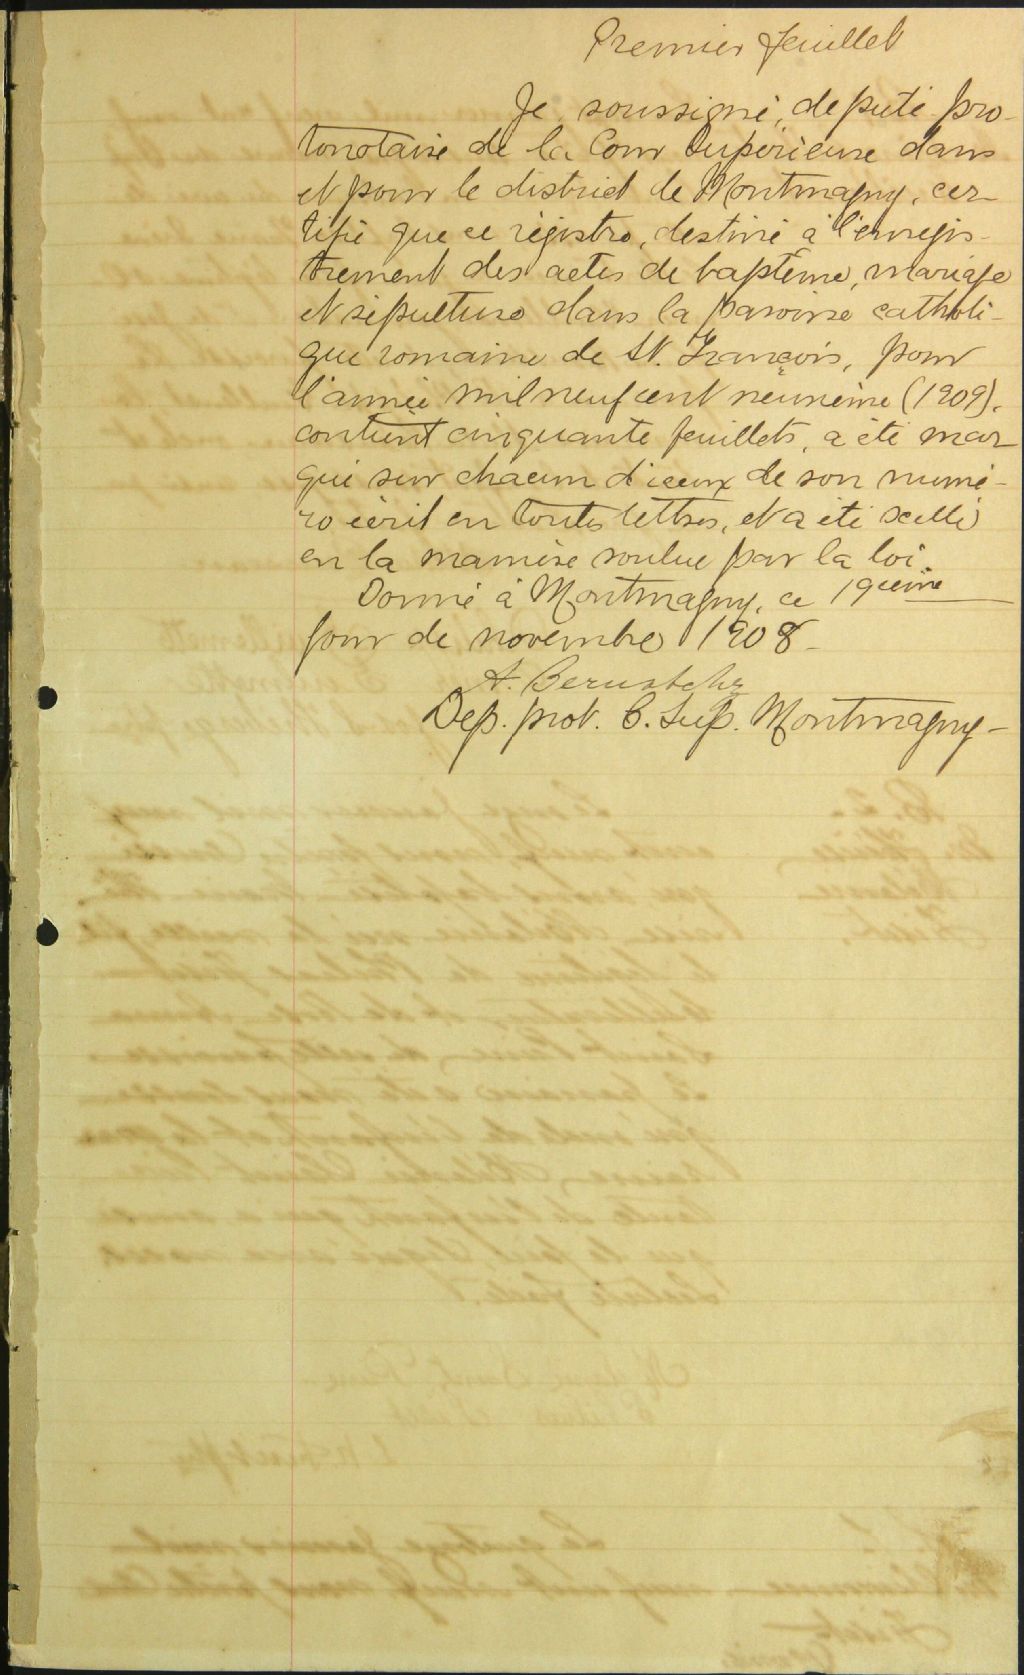 Premier feuillet
Je soussigné, député pro-
tonotaire de la Cour Supérieure dans
et pour le district de Montmagny, cer-
tifie que ce régistre, destiné à l'enregis-
trement des actes de baptême, mariage
et sépulture dans la paroisse catholi-
que romaine de St. François, pour
l'année mil neuf cent neuvième (1909),
contient cinquante feuillets, a été mar
qué sur chacun d'iceux de son numé-
ro écrit en toutes lettres, et a été scellé
en la manière voulue par la loi.
Donné à Montmagny, ce 19ième
jour de novembre 1908-
A.
Dep. prot. C. Sup. Montmagny-